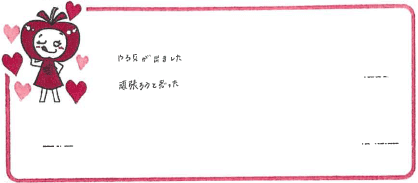 やる気が出ました
頑張ろうと思った